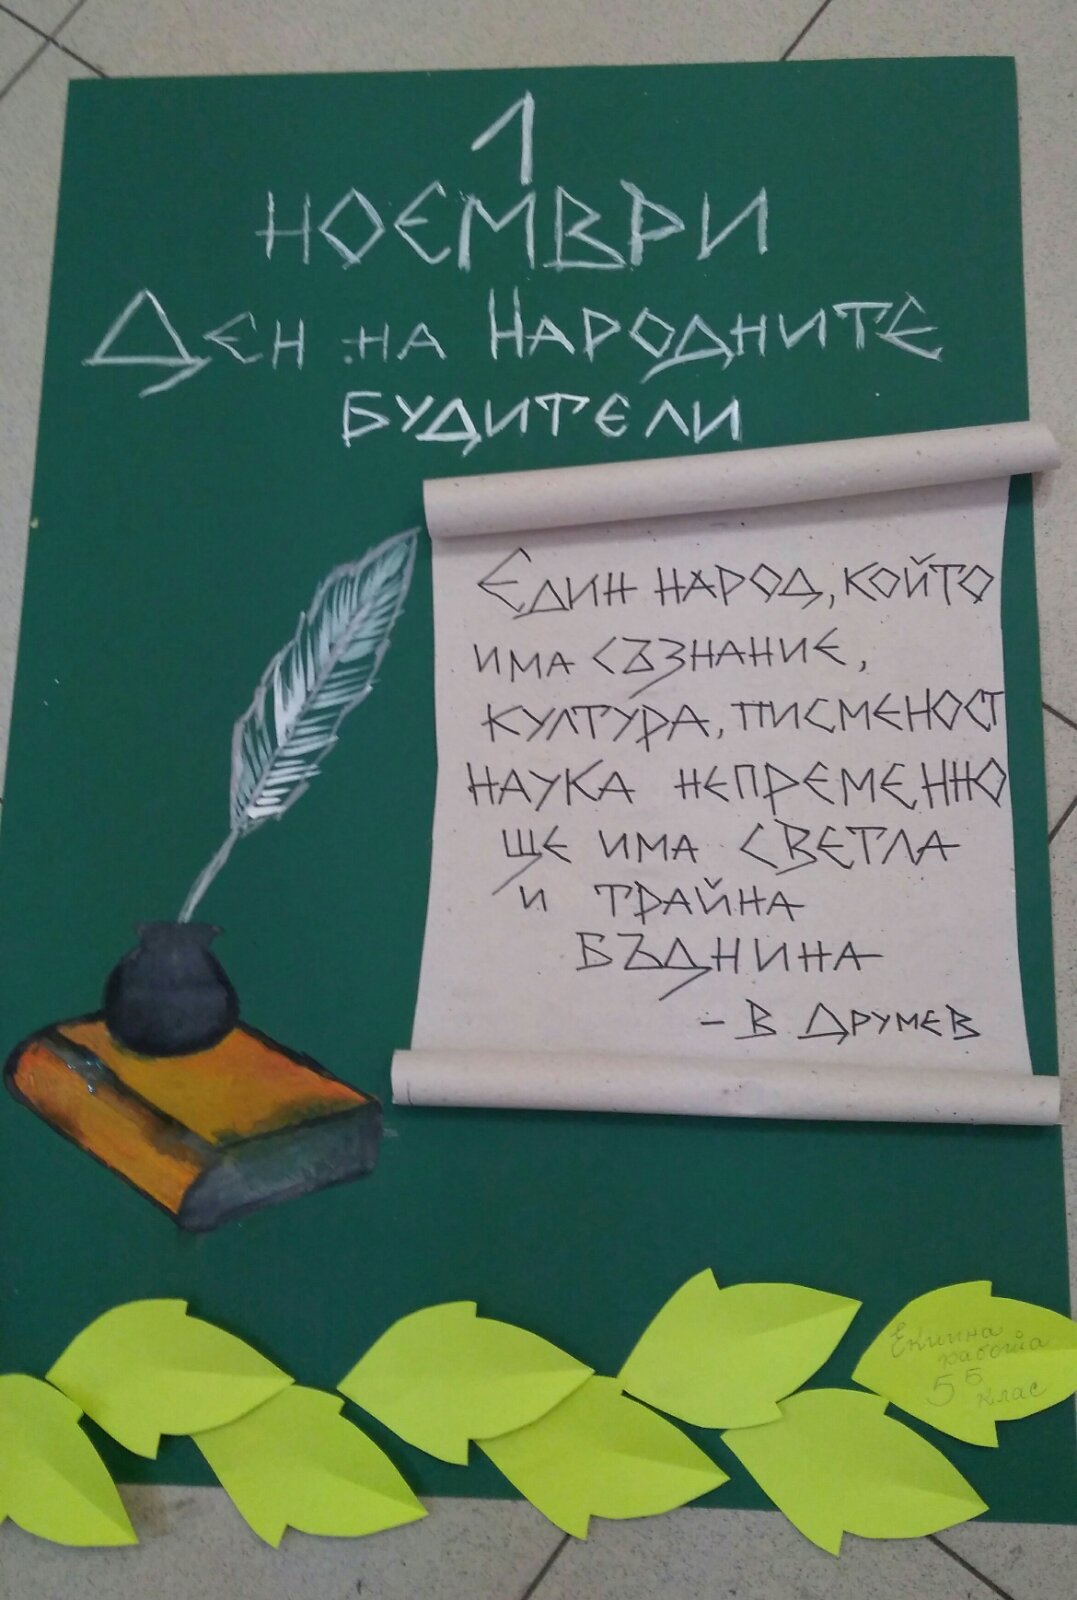 1
НОЕМВРИ
ДЕН НА НАРОДНИТЕ
БУДИТЕЛИ
ЕДИН НАРОД, КОЙТО
ИМА СЪЗНАНИЕ,
КУЛТУРА, ПИСМЕНОСТ
НАУКА НЕПРЕМЕННО
ЩЕ ИМА СВЕТЛА
И ТРАЙНА
БЪДНИНА
- В ДРУМЕВ
Екипна
работа
5 Б
клас